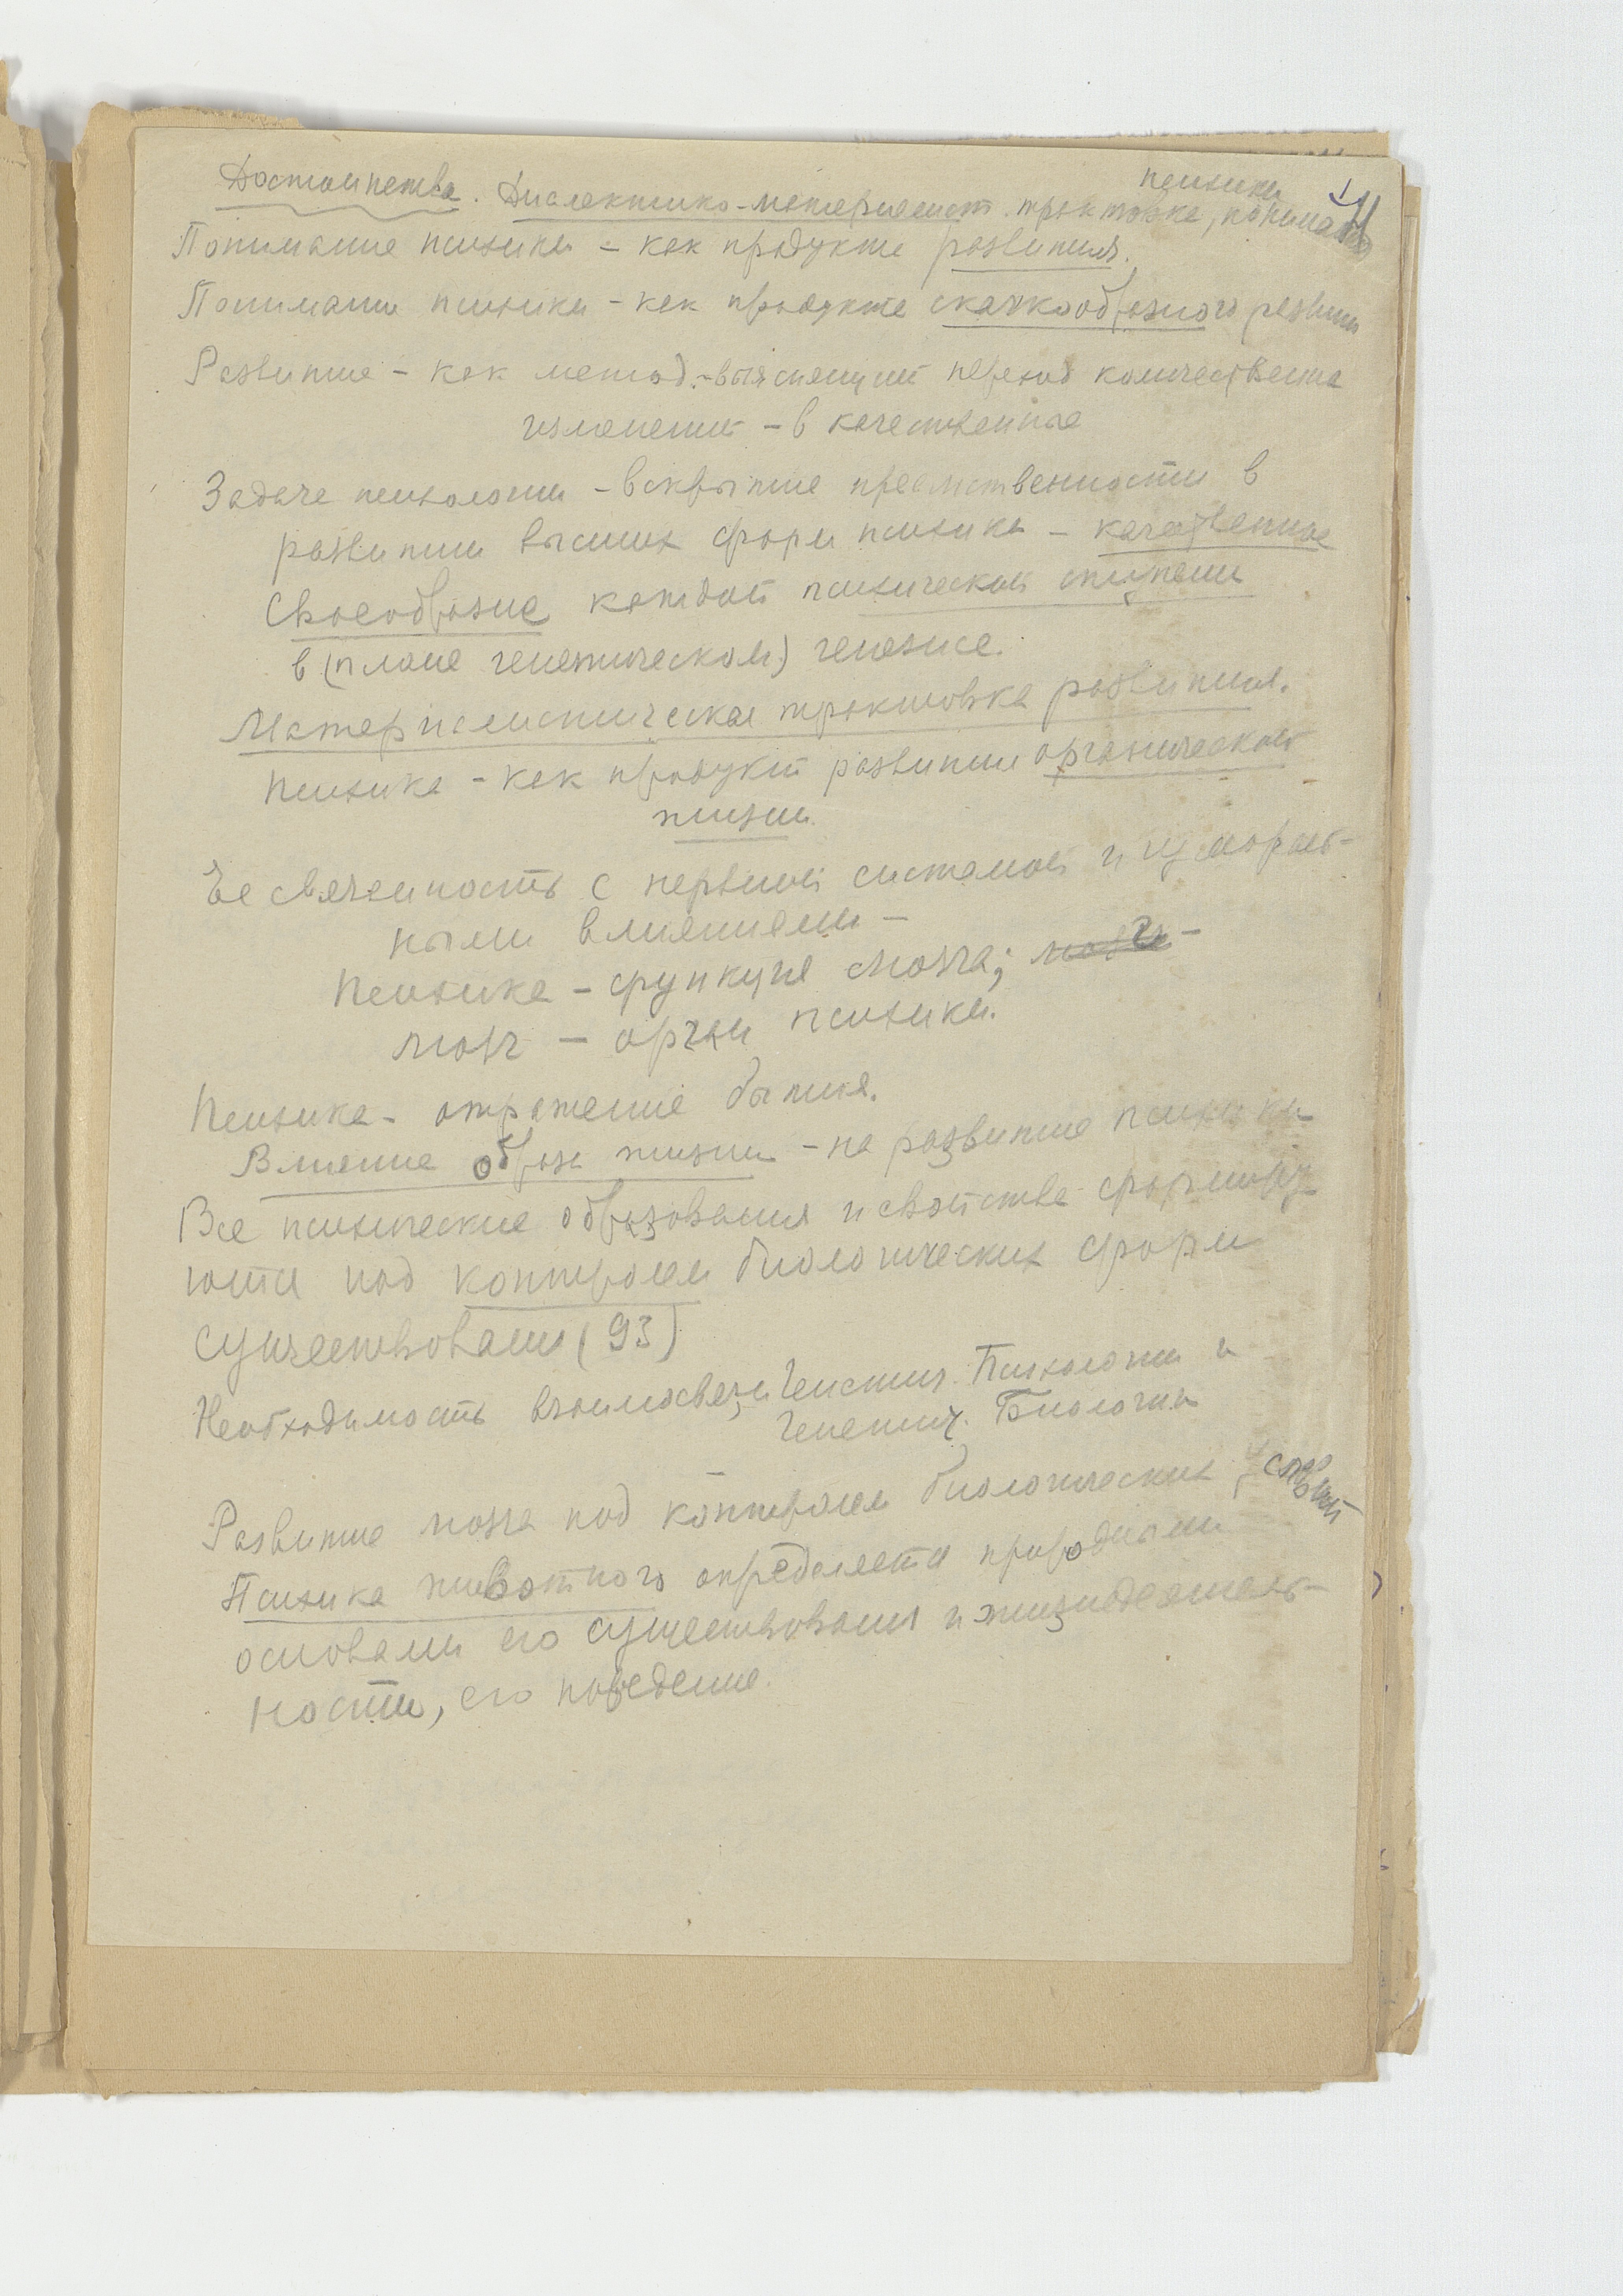 психики
Достоинства. Диалектико-материалист. трактовка, понимание
Понимание психики - как продукта развития.
Понимание психики - как продукта скачкообразного развития
Развитие - как метод - выясняющий переход количествен
изменений - в качественные
Задача психологии - вскрытие преемственности в
развитии высших форм психики - качественное
своеобразие каждой психической ступени
в (плане генетическом) генезисе.
Материалистическая трактовка развития.
Психика - как продукт развития органической
жизни.
Ее связанность с нервной системой и гумораль-
ными влияниями -
Психика - функция мозга; мозг -
мозг - орган психики.
Психика - отражение бытия.
Влияние образа жизни - на развитие психики
Все психические образования и свойства формиру
ются под контролем биологических форм
существования (93)
Необходимость взаимосвязи Генетич. Психологии и
Генетич. Биологии
Развитие мозга под контролем биологических условий
Психика животного определяется природными
основами его существования и жизнедеятель-
ности, его поведение.